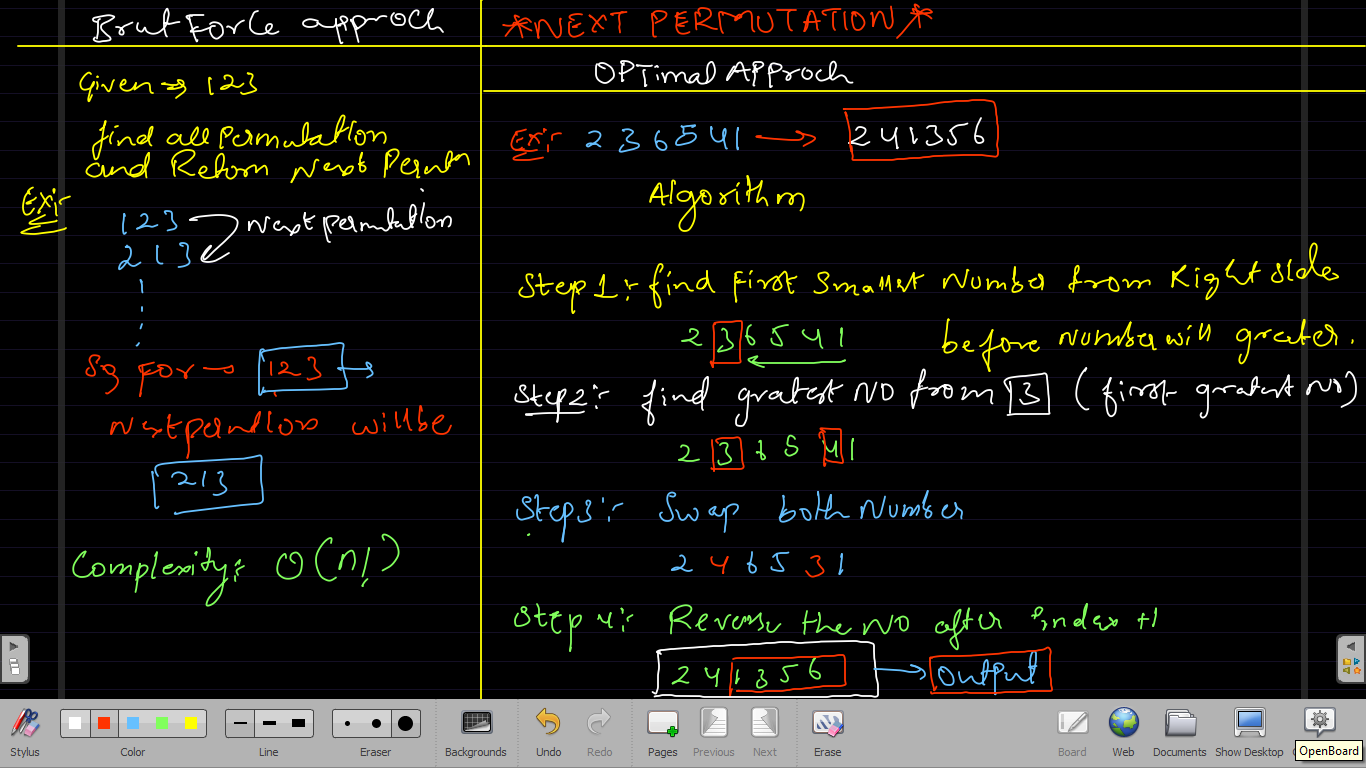 Brut Force approch
Given => 123
find all Permutation
and Return Next Permtn
Ex:-
123
Next permutation
213
So For → 123 →
Next permtion will be
213
Complexity:- O(n!)
*NEXT PERMUTATION*
OPTimal APProch
Ex:- 236541 → 241356
Algorithm
Step 1:- find First Smallest Number from Right sides
2 3 6 5 4 1 before Number will greater.
Step2:- find gratest NO from 3 (first gratest NO)
2 3 6 5 4 1
Step3:- Swap both Number
2 4 6 5 3 1
Step 4:- Reverse the NO after index +1
2 4 1 3 5 6 → Output
Stylus
Color
Line
Eraser
Backgrounds
Undo
Redo
Pages
Previous
Next
Erase
Board
Web
Documents
Show Desktop
OpenBoard